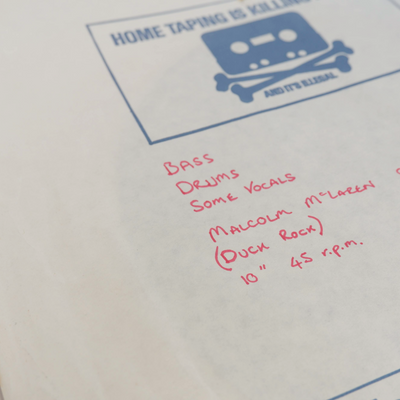 HOME TAPING IS KILLING
AND IT'S ILLEGAL
BASS
DRUMS
SOME VOCALS
MALCOLM McLAREN
(DUCK ROCK)
10" 45 r.p.m.